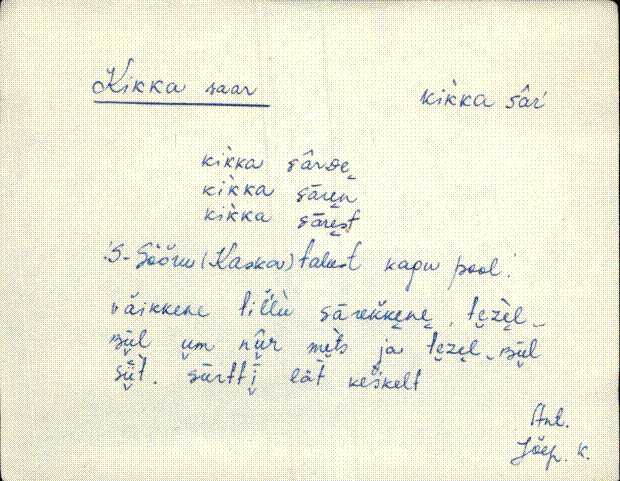 Kikka saar
kìkka sâr
kìkka sârᴅe̮
kìkka sāre̮n
kìkka sāre̮st
S-Sõõru (Kaska) talust kagu pool.
väikkene tiĺlù sāreḱke̮ne̮, te̮zè̮l
ʙū̮l u̮m nûr me̮ts ja te̮ze̮l ʙū̮l
sū̮t. sūrttī̮ lät keskelt
Ant.
Jõep. k.